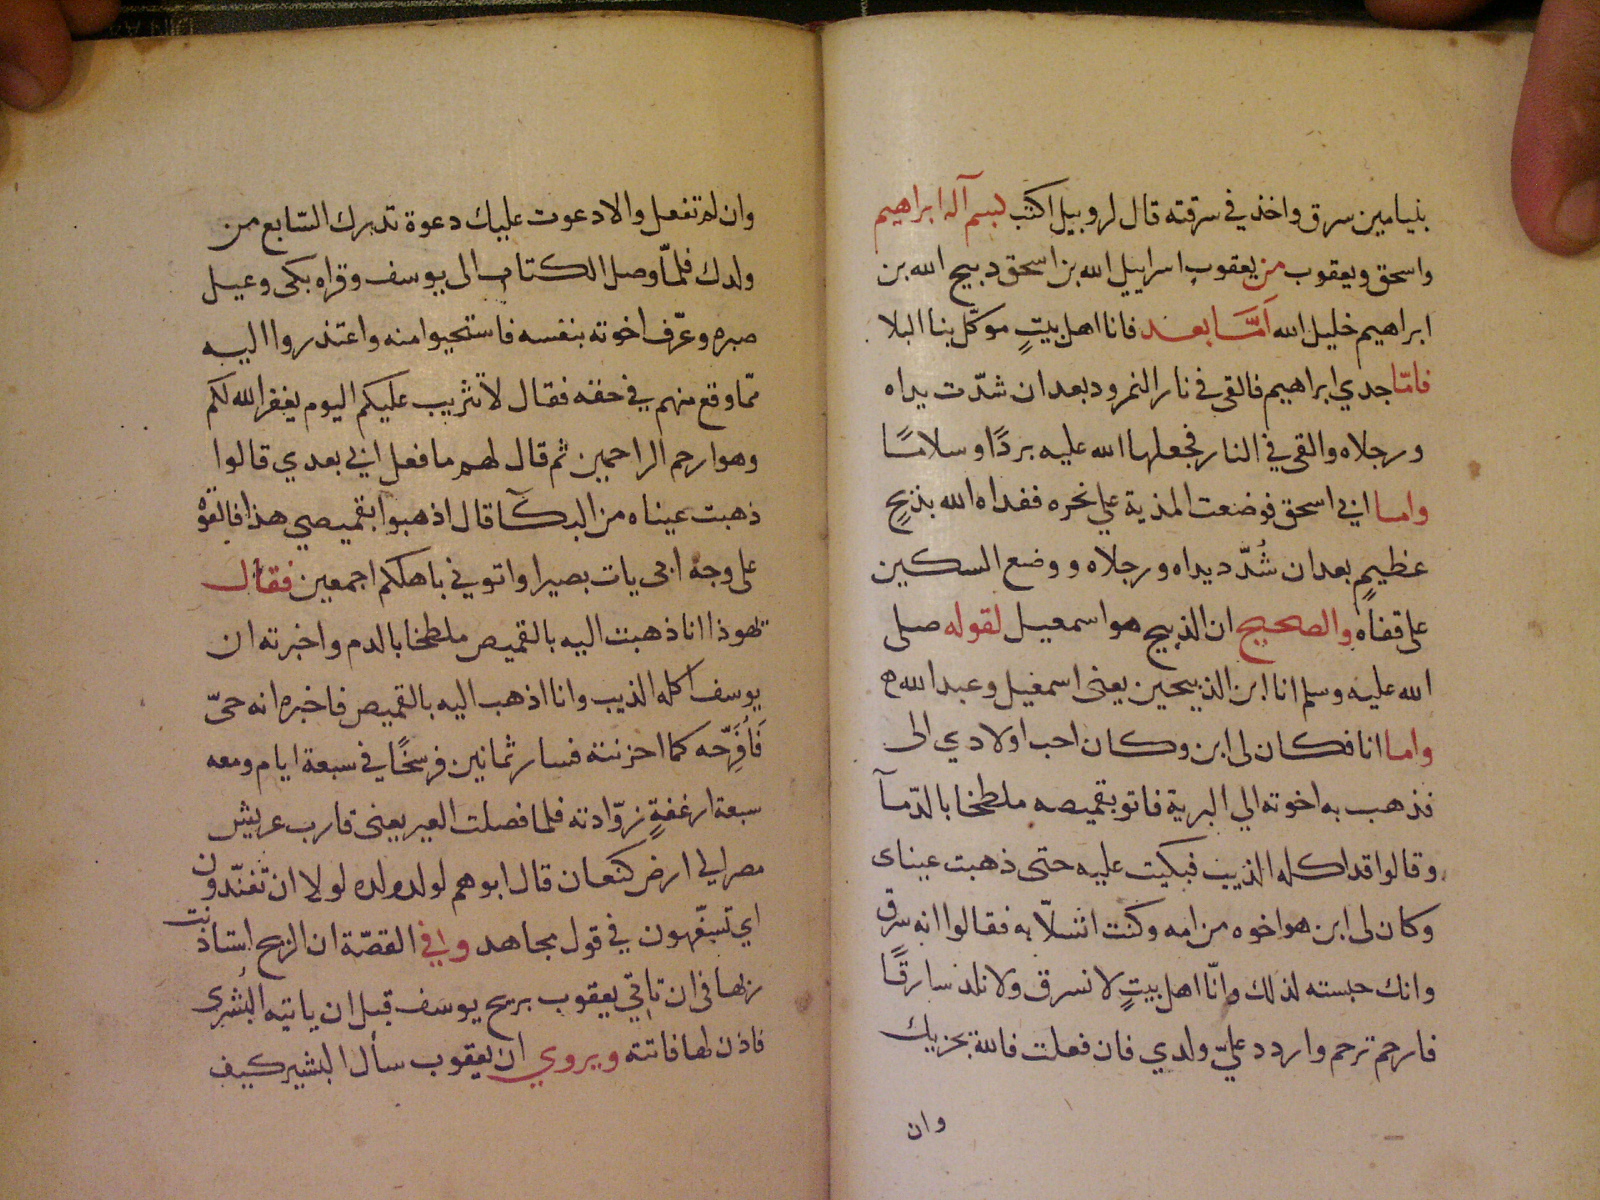 بنيامين سرق واخذ في سرقته قال لروبيل اكتب لبسم آله ابراهيم
واسحق ويعقوب من يعقوب اسراييل الله بن اسحق دبيح الله بن
ابراهيم خليل الله آمّا بعد فانا اهل بيتٍ موكّل بنا البلا
فامّا جدي ابراهيم فالقى في نار النمرود بعد ان شدّت يداه
ورجلاه والقى في النار فجعلها الله عليه بردًا وسلامًا
واما ابي اسحق فوضعت المذية علي نحره ففداه الله بذبحٍ
عظيمٍ بعد ان شُدّد يداه ورجلاه ووضع السكين
على قفاه والصحيح ان الذبيح هو اسمعيل لقوله صلى
الله عليه وسلم انا ابن الذبيحين يعنى اسمعيل وعبد الله ه
واما انا فكان لى ابن وكان احب اولادي الى
فذهب به اخوته الي البرية فاتو بقميصه ملطخا بالدّمآ
وقالوا قد اكله الذيب فبكيت عليه حتى ذهبت عيناى
وكان لى ابن هو اخوه من امه وكنت اتسلّا به فقالوا انه سرق
وانك حبسته لذلك وانّا اهل بيتٍ لا نسرق ولا نلد سارقًا
فارحم ترحم واردد عليّ ولدي فان فعلت فالله يجزيك
وان
وان لم تفعل والا دعوت عليك دعوة تدرك السّابع من
ولدك فلمّا وصل الكتاب الى يوسف وقراه بكى وعيل
صبره وعرّف اخوته بنفسه فاستحيوا منه واعتذروا اليه
ممّا وقع منهم في حقه فقال لا تثريب عليكم اليوم يغفر الله لكم
وهو ارحم الراحمين ثم قال لهم ما فعل ابي بعدي قالوا
ذهبت عيناه من البكآ قال اذهبوا بقميصي هذا فالقوه
على وجه ابى يات بصيرا واتوني باهلكم اجمعين فقال
يهوذا انا ذهبت اليه بالقميص ملطخا بالدم واخبرته ان
يوسف اكله الذيب وانا اذهب اليه بالقميص فاخبره انه حىّ
فَأُفَرِّحه كما احزنته فسار ثمانين فرسخًا في سبعة ايام ومعه
سبعة ارغفةٍ زوّادته فلما فصلت العير يعنى قارب عريش
مصر الي ارض كنعان قال ابوهم لولد ولده لولا ان تفنّدون
اي تسفّهون في قول مجاهد وفي القصّة ان الريح استاذنت
ربها فى ان تاتي يعقوب بريح يوسف قبل ان ياتيه البُشرى
فاذن لها فاتته ويروي ان يعقوب سأل البشير كيف